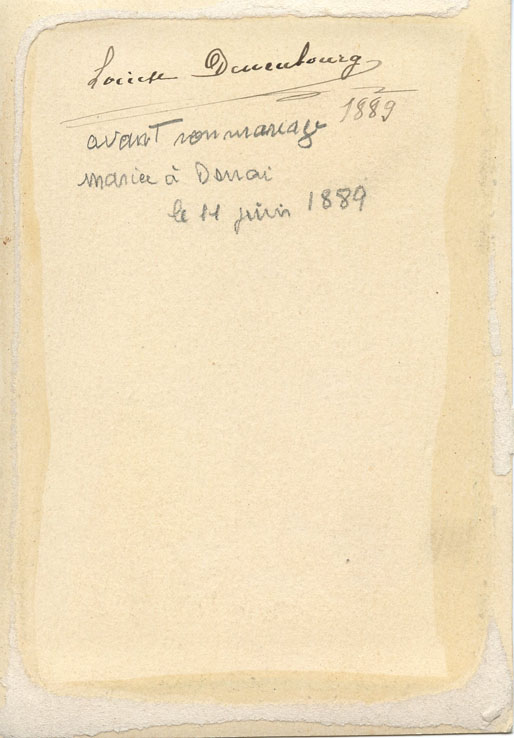 Louise Dumenbourg
avant son mariage 1889
mariée à Douai
le 11 juin 1889